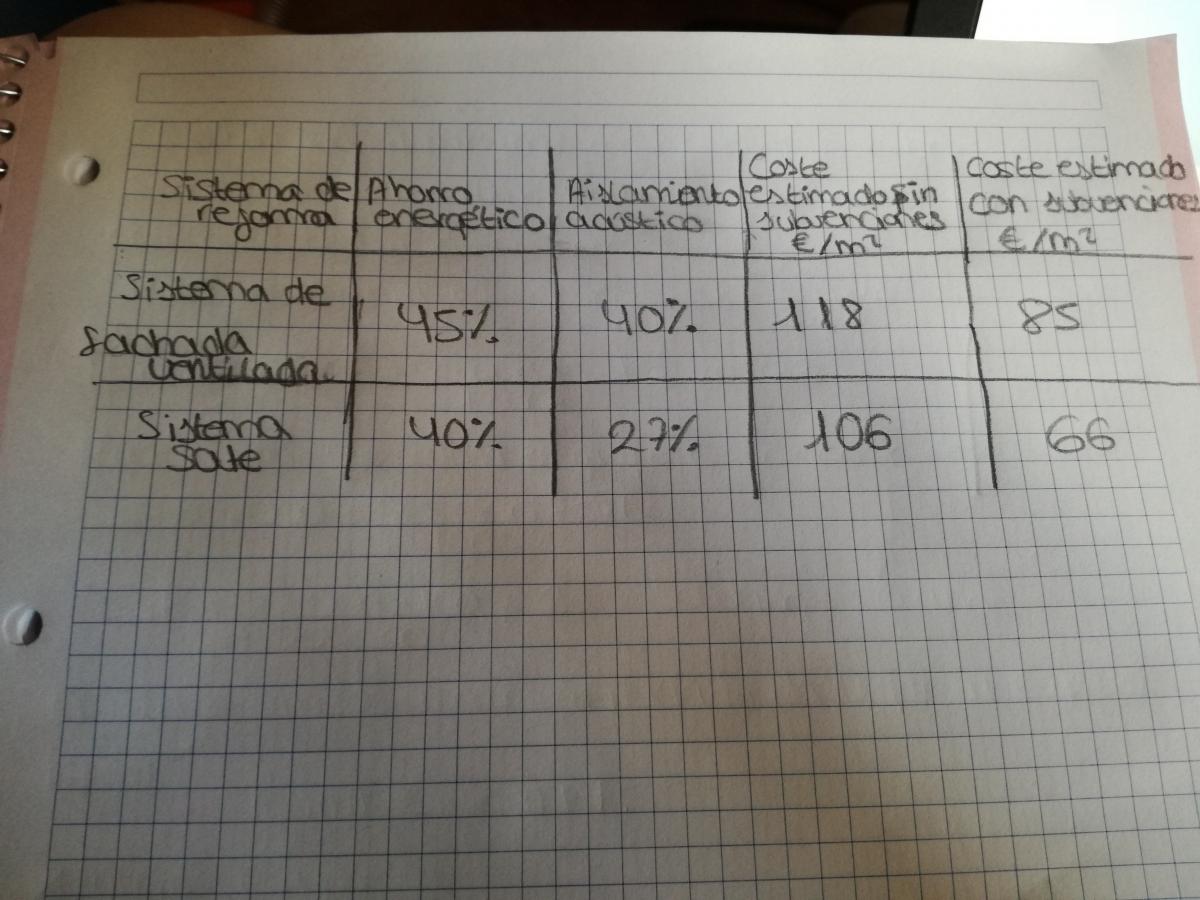 Sistema de reforma
Ahorro energético
Aislamiento acústico
Coste estimado sin subvenciones €/m²
Coste estimado con subvenciones €/m²
Sistema de fachada ventilada
45%
40%
118
85
Sistema Sate
40%
27%
106
66